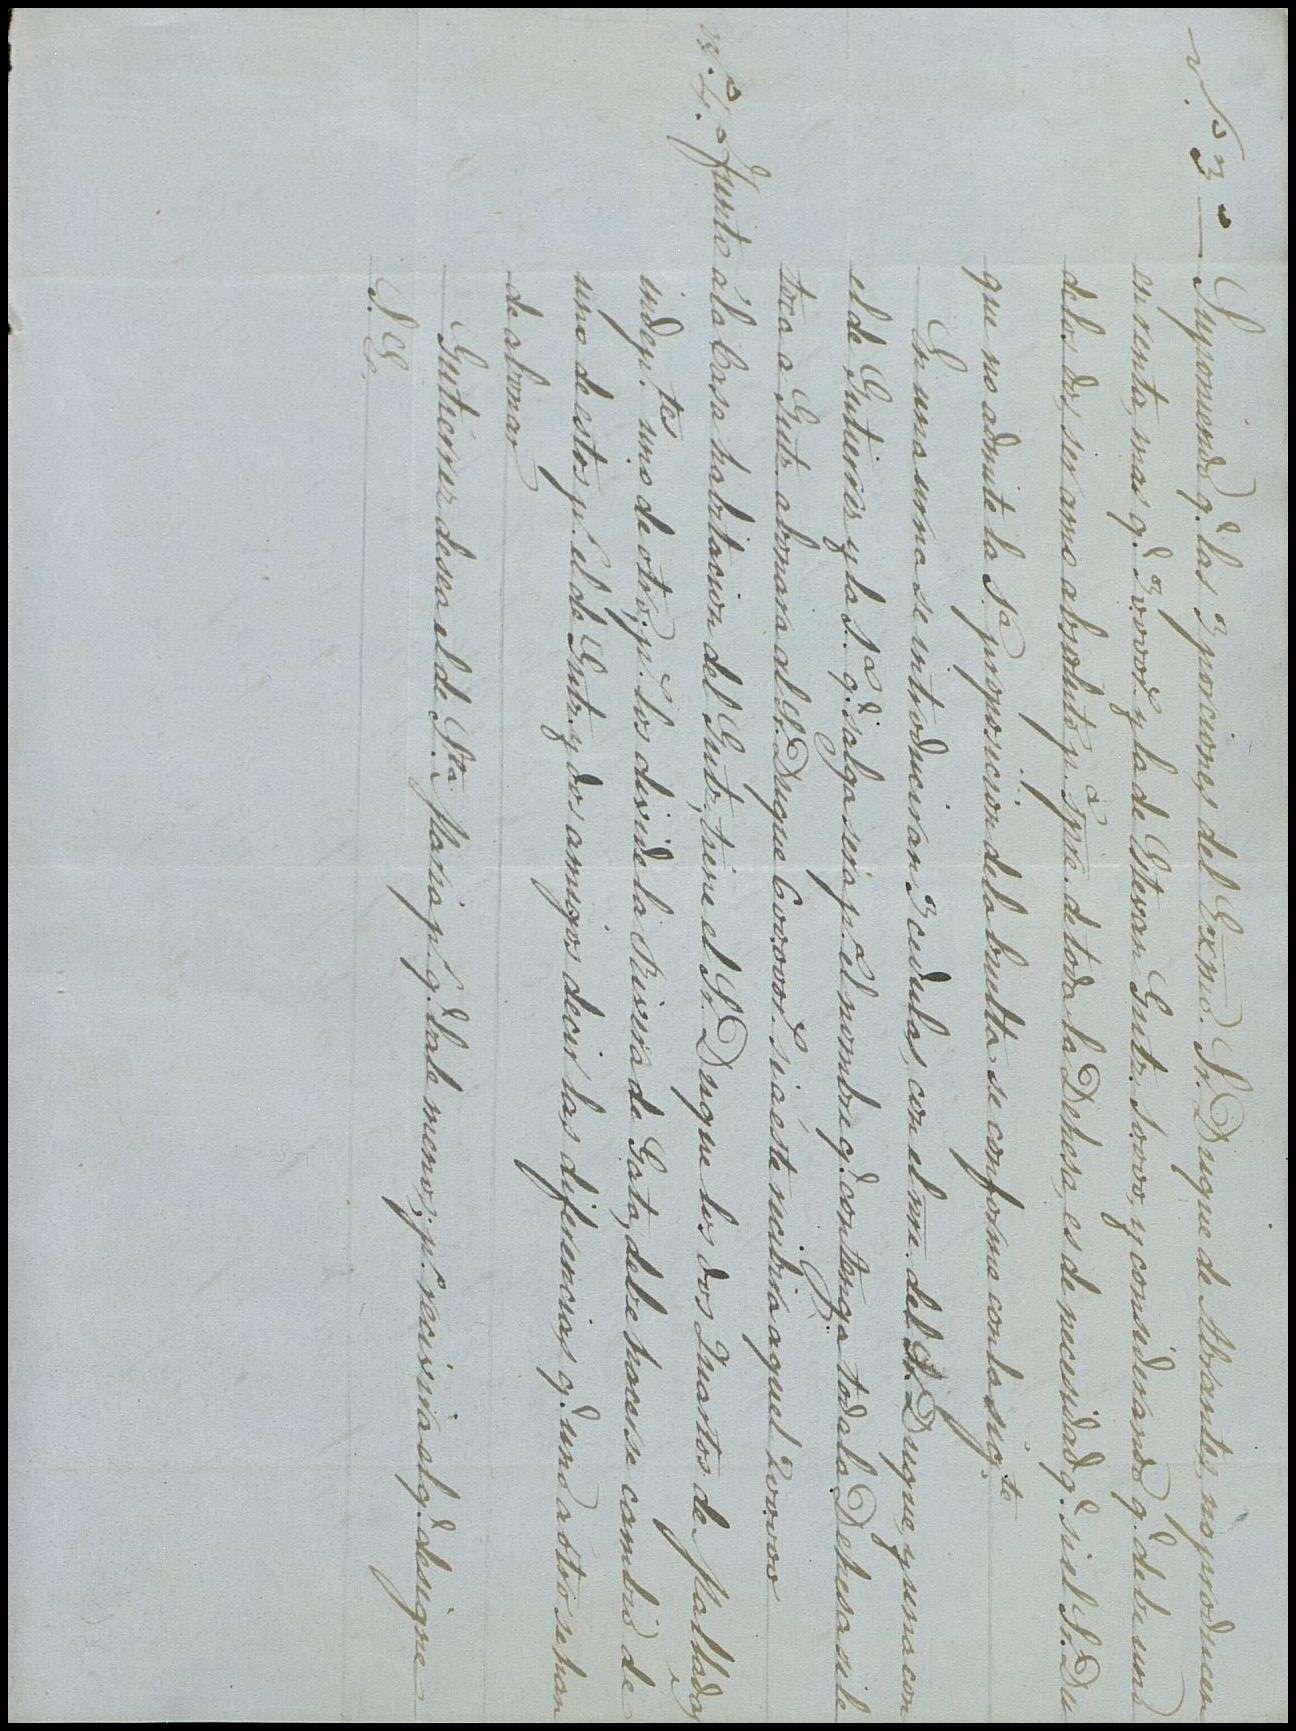 N.º 3.º — Suponiendo q.e las 3 porciones del Exmo. Sr. Duque de Abrantes, no producen
en renta, mas q.e 3000r.s y la de Estevan Gutz. 1000, y considerando q.e debe uno
de los dos, ser amo absoluto p.a spre. de toda la Dehesa, es de necesidad q.e si el Sr. Du
que no admite la 1.a proposicion de la bulta se conforme con la sig.te
En una urna se introduciran 3 cedulas, con el nre. del Sr. Duque, y una con
el de Gutierrez y la 1.a q.e salga sera p.a el nombre q.e contenga toda la Dehesa si le
toca a Gutz. abonara al Sr. Duque 60000r.s si a éste recibirá aquel 20000
N.º 4.º Junto á la Casa habitacion del Gutz, tiene el Sr. Duque los dos Quartos de Mallada
indep.tes uno de otro, p.r los divide la Rivera de Gata, debe hacerse cambio de
uno de estos p.r el de Gutz. y dos amigos decir las diferencias q.e uno a otro se han
de abonar
Gutierrez desea el de Sta. Maria p.r q.e vale menos, p.o recivira el q.e designe
S. E.